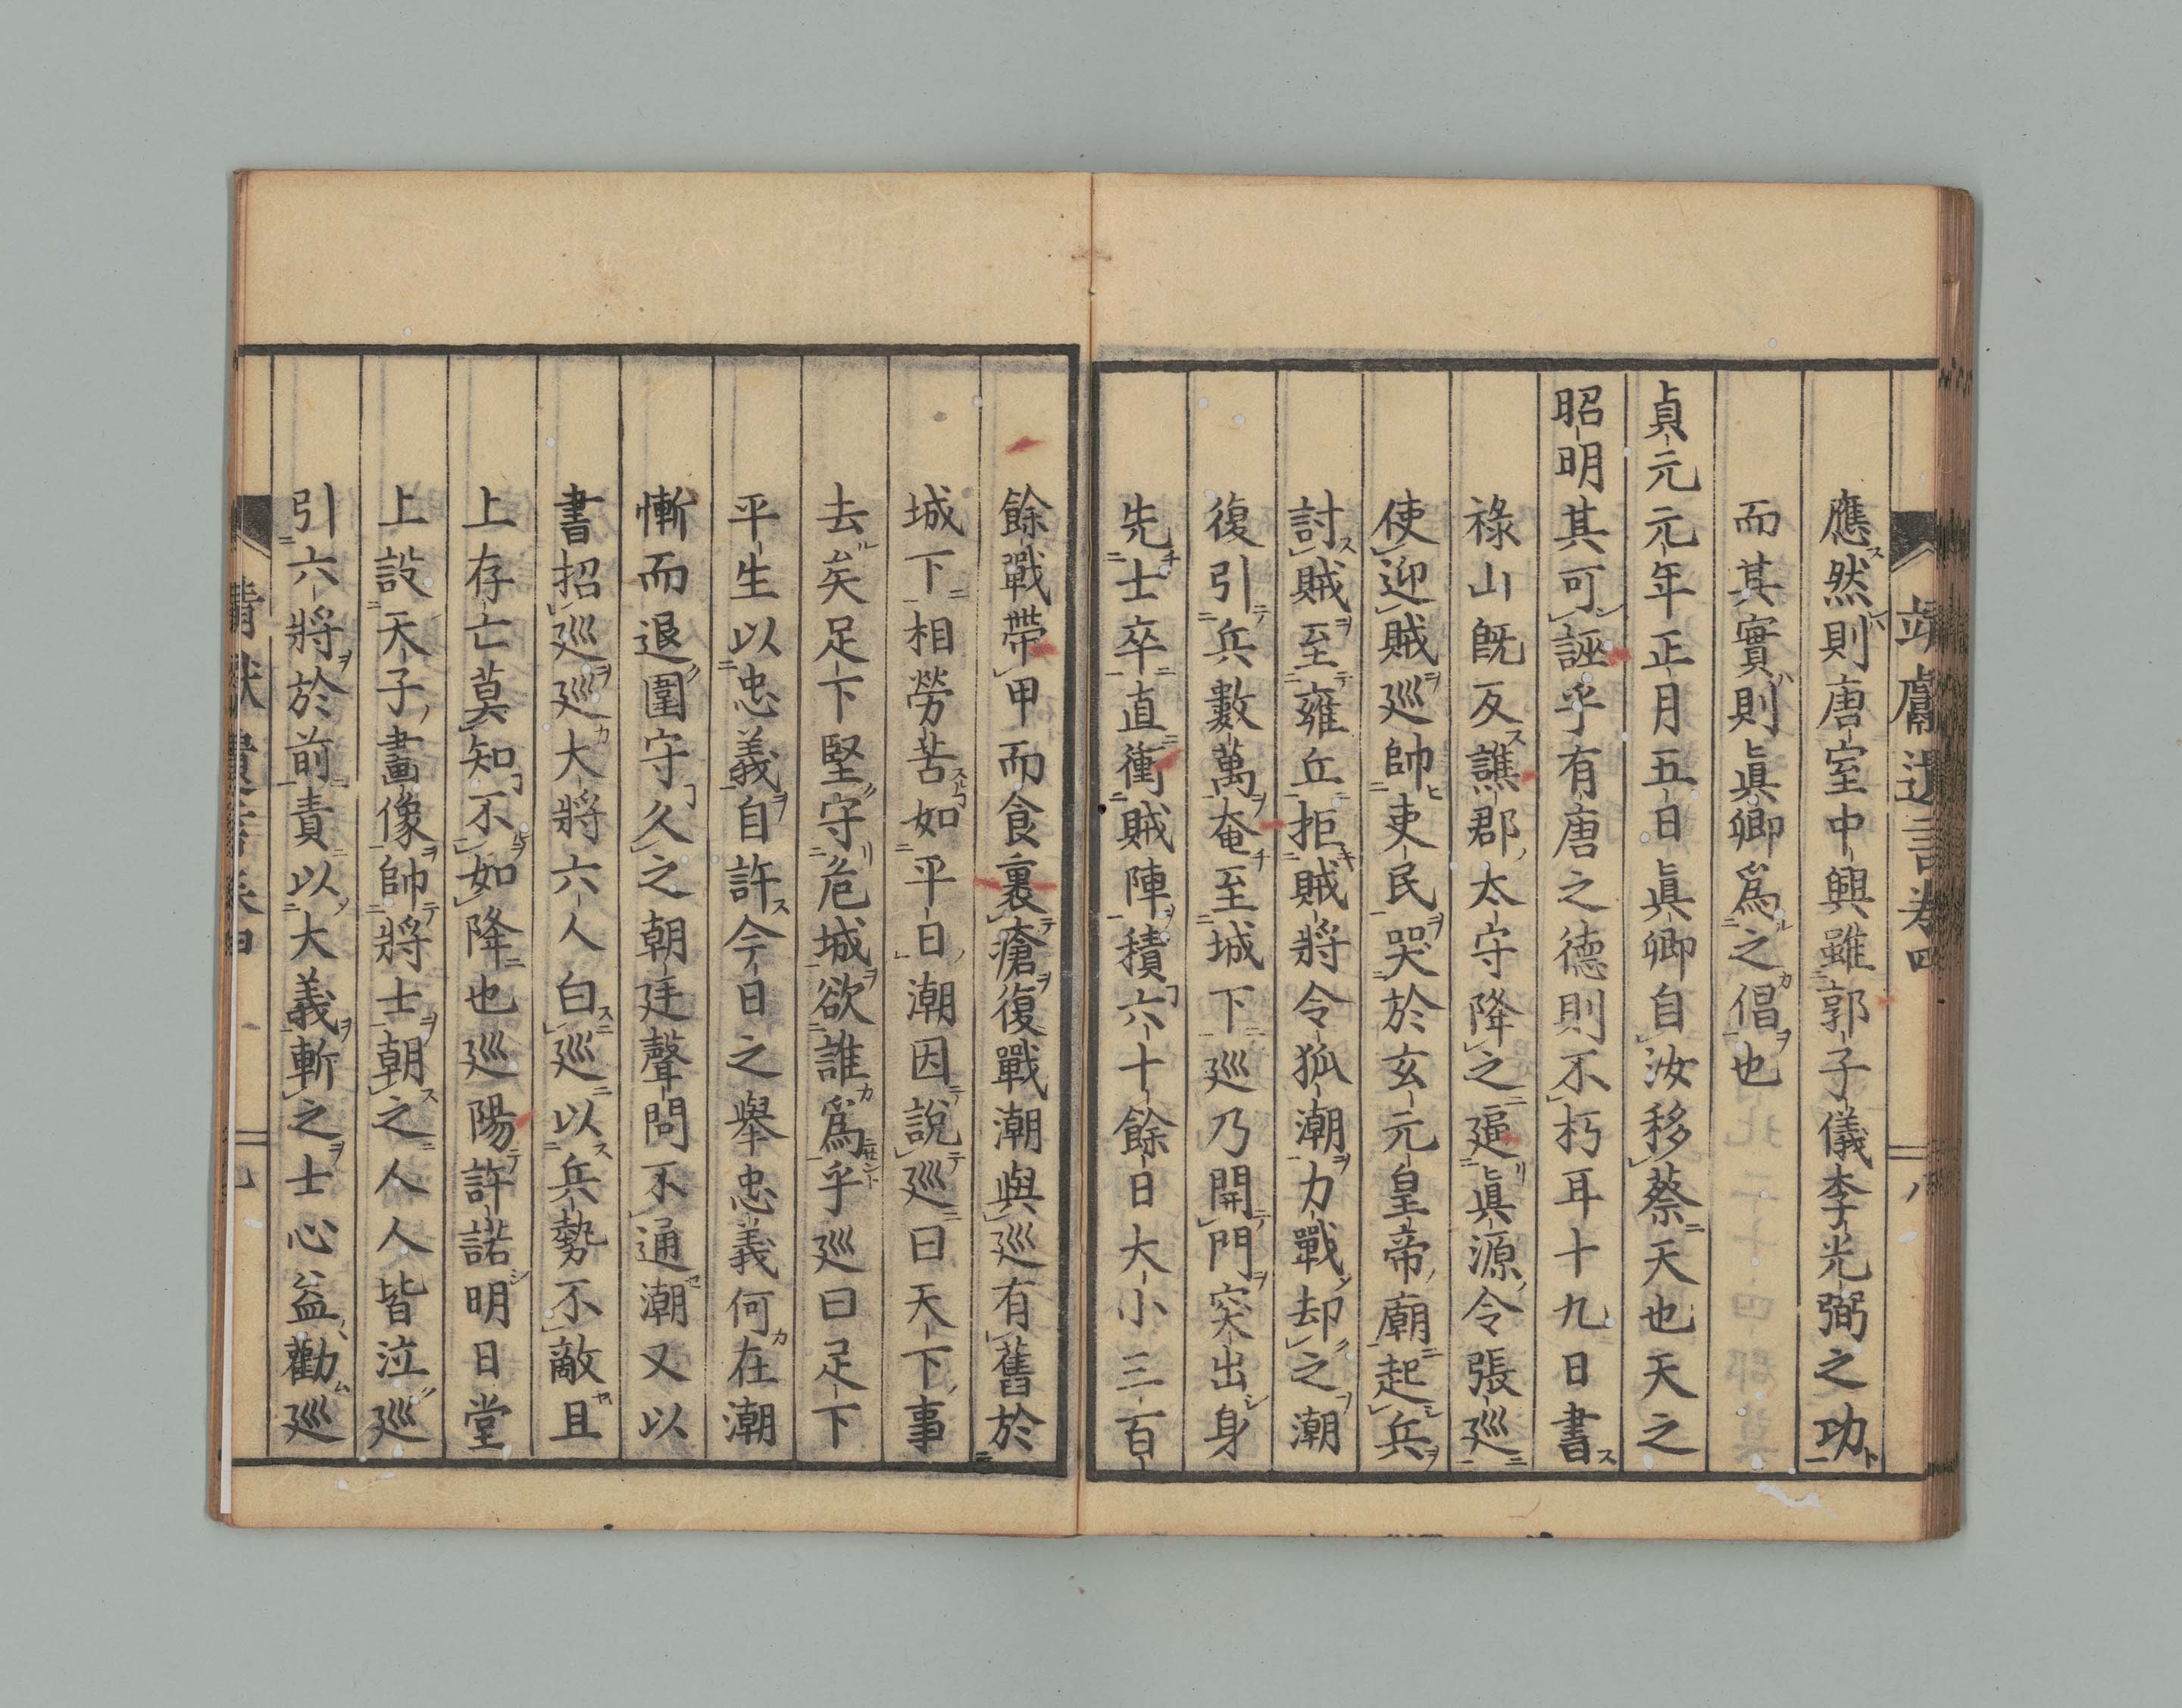 靖獻遺言卷四
八
應然則唐室中興雖郭子儀李光弼之功
而其實則眞卿爲之倡也
貞元元年正月五日眞卿自汝移蔡天也天之
昭明其可誣乎有唐之德則不朽耳十九日書
祿山既反譙郡太守降之逼眞源令張巡
使迎賊巡帥吏民哭於玄元皇帝廟起兵
討賊至雍丘拒賊將令狐潮力戰却之潮
復引兵數萬奄至城下巡乃開門突出身
先士卒直衝賊陣積六十餘日大小三百
餘戰帶甲而食裹瘡復戰潮與巡有舊於
城下相勞苦如平日潮因說巡曰天下事
去矣足下堅守危城欲誰爲乎巡曰足下
平生以忠義自許今日之舉忠義何在潮
慚而退圍守久之朝廷聲問不通潮又以
書招巡巡大將六人白巡以兵勢不敵且
上存亡莫知不如降也巡陽許諾明日堂
上設天子畫像帥將士朝之人人皆泣巡
引六將於前責以大義斬之士心益勸巡